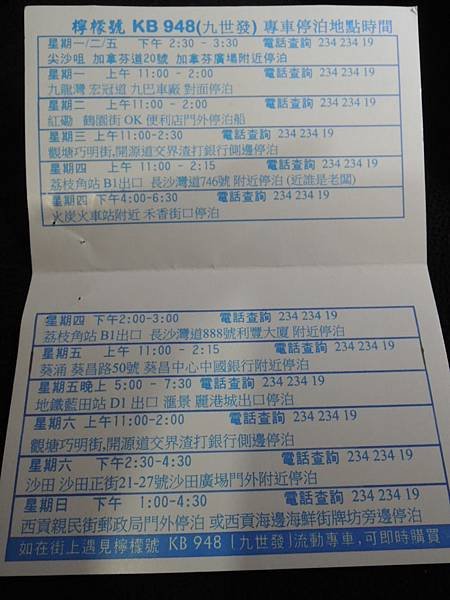 檸檬號 KB 948(九世發) 專車停泊地點時間
星期一/二/五 下午 2:30 - 3:30 電話查詢 234 234 19
尖沙咀 加拿芬道20號 加拿芬廣場附近停泊
星期一 上午 11:00 - 2:00 電話查詢 234 234 19
九龍灣 宏冠道 九巴車廠 對面停泊
星期二 上午 11:00 - 2:00 電話查詢 234 234 19
紅磡 鶴園街 OK 便利店門外停泊船
星期三 上午11:00-2:30 電話查詢 234 234 19
觀塘巧明街,開源道交界渣打銀行側邊停泊
星期四 上午 11:00 - 2:15 電話查詢 234 234 19
荔枝角站 B1出口 長沙灣道746號 附近停泊 (近誰是老闆)
星期四 下午4:00-6:30 電話查詢 234 234 19
火炭火車站附近 禾香街口停泊
星期四 下午2:00-3:00 電話查詢 234 234 19
荔枝角站 B1出口 長沙灣道888號利豐大廈 附近停泊
星期五 上午 11:00 - 2:15 電話查詢 234 234 19
葵涌 葵昌路50號 葵昌中心中國銀行附近停泊
星期五晚上 5:00 - 7:30 電話查詢 234 234 19
地鐵藍田站 D1 出口 滙景 麗港城出口停泊
星期六 上午11:00-2:00 電話查詢 234 234 19
觀塘巧明街,開源道交界渣打銀行側邊停泊
星期六 下午2:30-4:30 電話查詢 234 234 19
沙田 沙田正街21-27號沙田廣場門外附近停泊
星期日 下午 1:00-4:30 電話查詢 234 234 19
西貢親民街郵政局門外停泊 或西貢海邊海鮮街牌坊旁邊停泊
如在街上遇見檸檬號 KB 948「九世發」流動專車,可即時購買